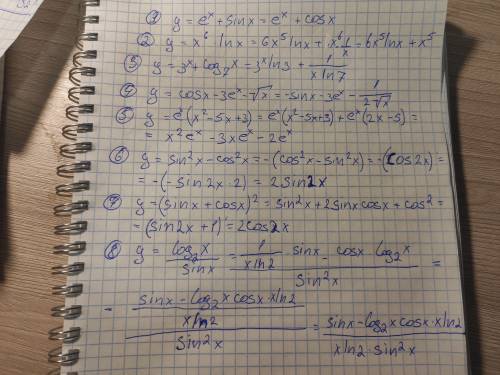 ① y = eˣ + sinx = eˣ + cosx
② y = x⁶ lnx = 6x⁵ lnx + x⁶ 1/x = 6x⁵ lnx + x⁵
③ y = 3ˣ + log₇x = 3ˣ ln3 + 1/(x ln7)
④ y = cosx - 3eˣ - √x = -sinx - 3eˣ - 1/(2√x)
⑤ y = eˣ(x² - 5x + 3) = eˣ(x² - 5x + 3) + eˣ(2x - 5) =
= x²eˣ - 3xeˣ - 2eˣ
⑥ y = sin²x - cos²x = -(cos²x - sin²x) = -(cos2x) =
= -(-sin2x · 2) = 2sin2x
⑦ y = (sinx + cosx)² = sin²x + 2sinxcosx + cos² =
= (sin2x + 1)' = 2cos2x
⑧ y = log₂x / sinx = (1/(x ln2) · sinx - cosx log₂x) / sin²x =
= ((sinx - log₂x cosx · x ln2) / (x ln2)) / sin²x = (sinx - log₂x cosx · x ln2) / (x ln2 · sin²x)